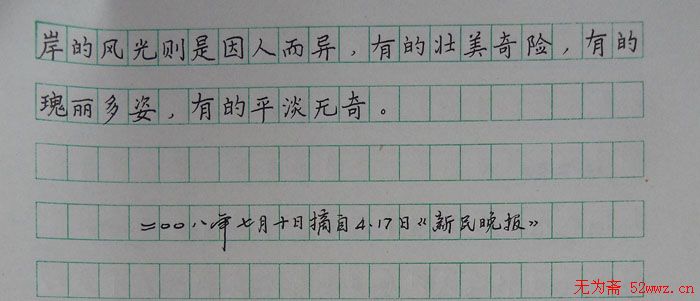 岸的风光则是因人而异，有的壮美奇险，有的
瑰丽多姿，有的平淡无奇。
二〇〇八年七月十日摘自4.17日《新民晚报》
无为斋 52wwz.cn